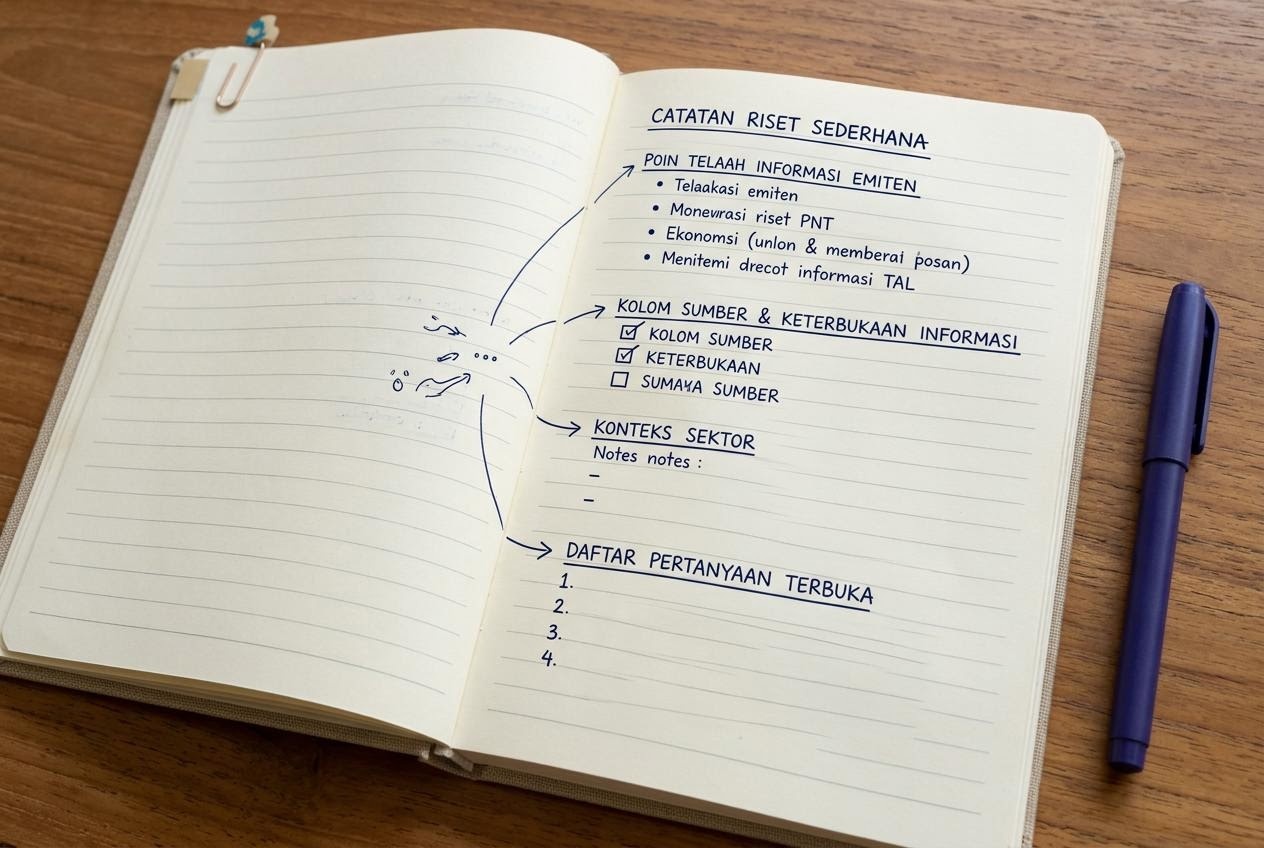 CATATAN RISET SEDERHANA
POIN TELAAH INFORMASI EMITEN
• Telaakasi emiten
• Monewrasi riset PNT
• Ekonomsi (unlon & memberai posan)
• Menitemi drecot informasi TAL
KOLOM SUMBER & KETERBUKAAN INFORMASI
☑ KOLOM SUMBER
☑ KETERBUKAAN
☐ SUMAYA SUMBER
KONTEKS SEKTOR
Notes notes :
–
–
DAFTAR PERTANYAAN TERBUKA
1.
2.
3.
4.